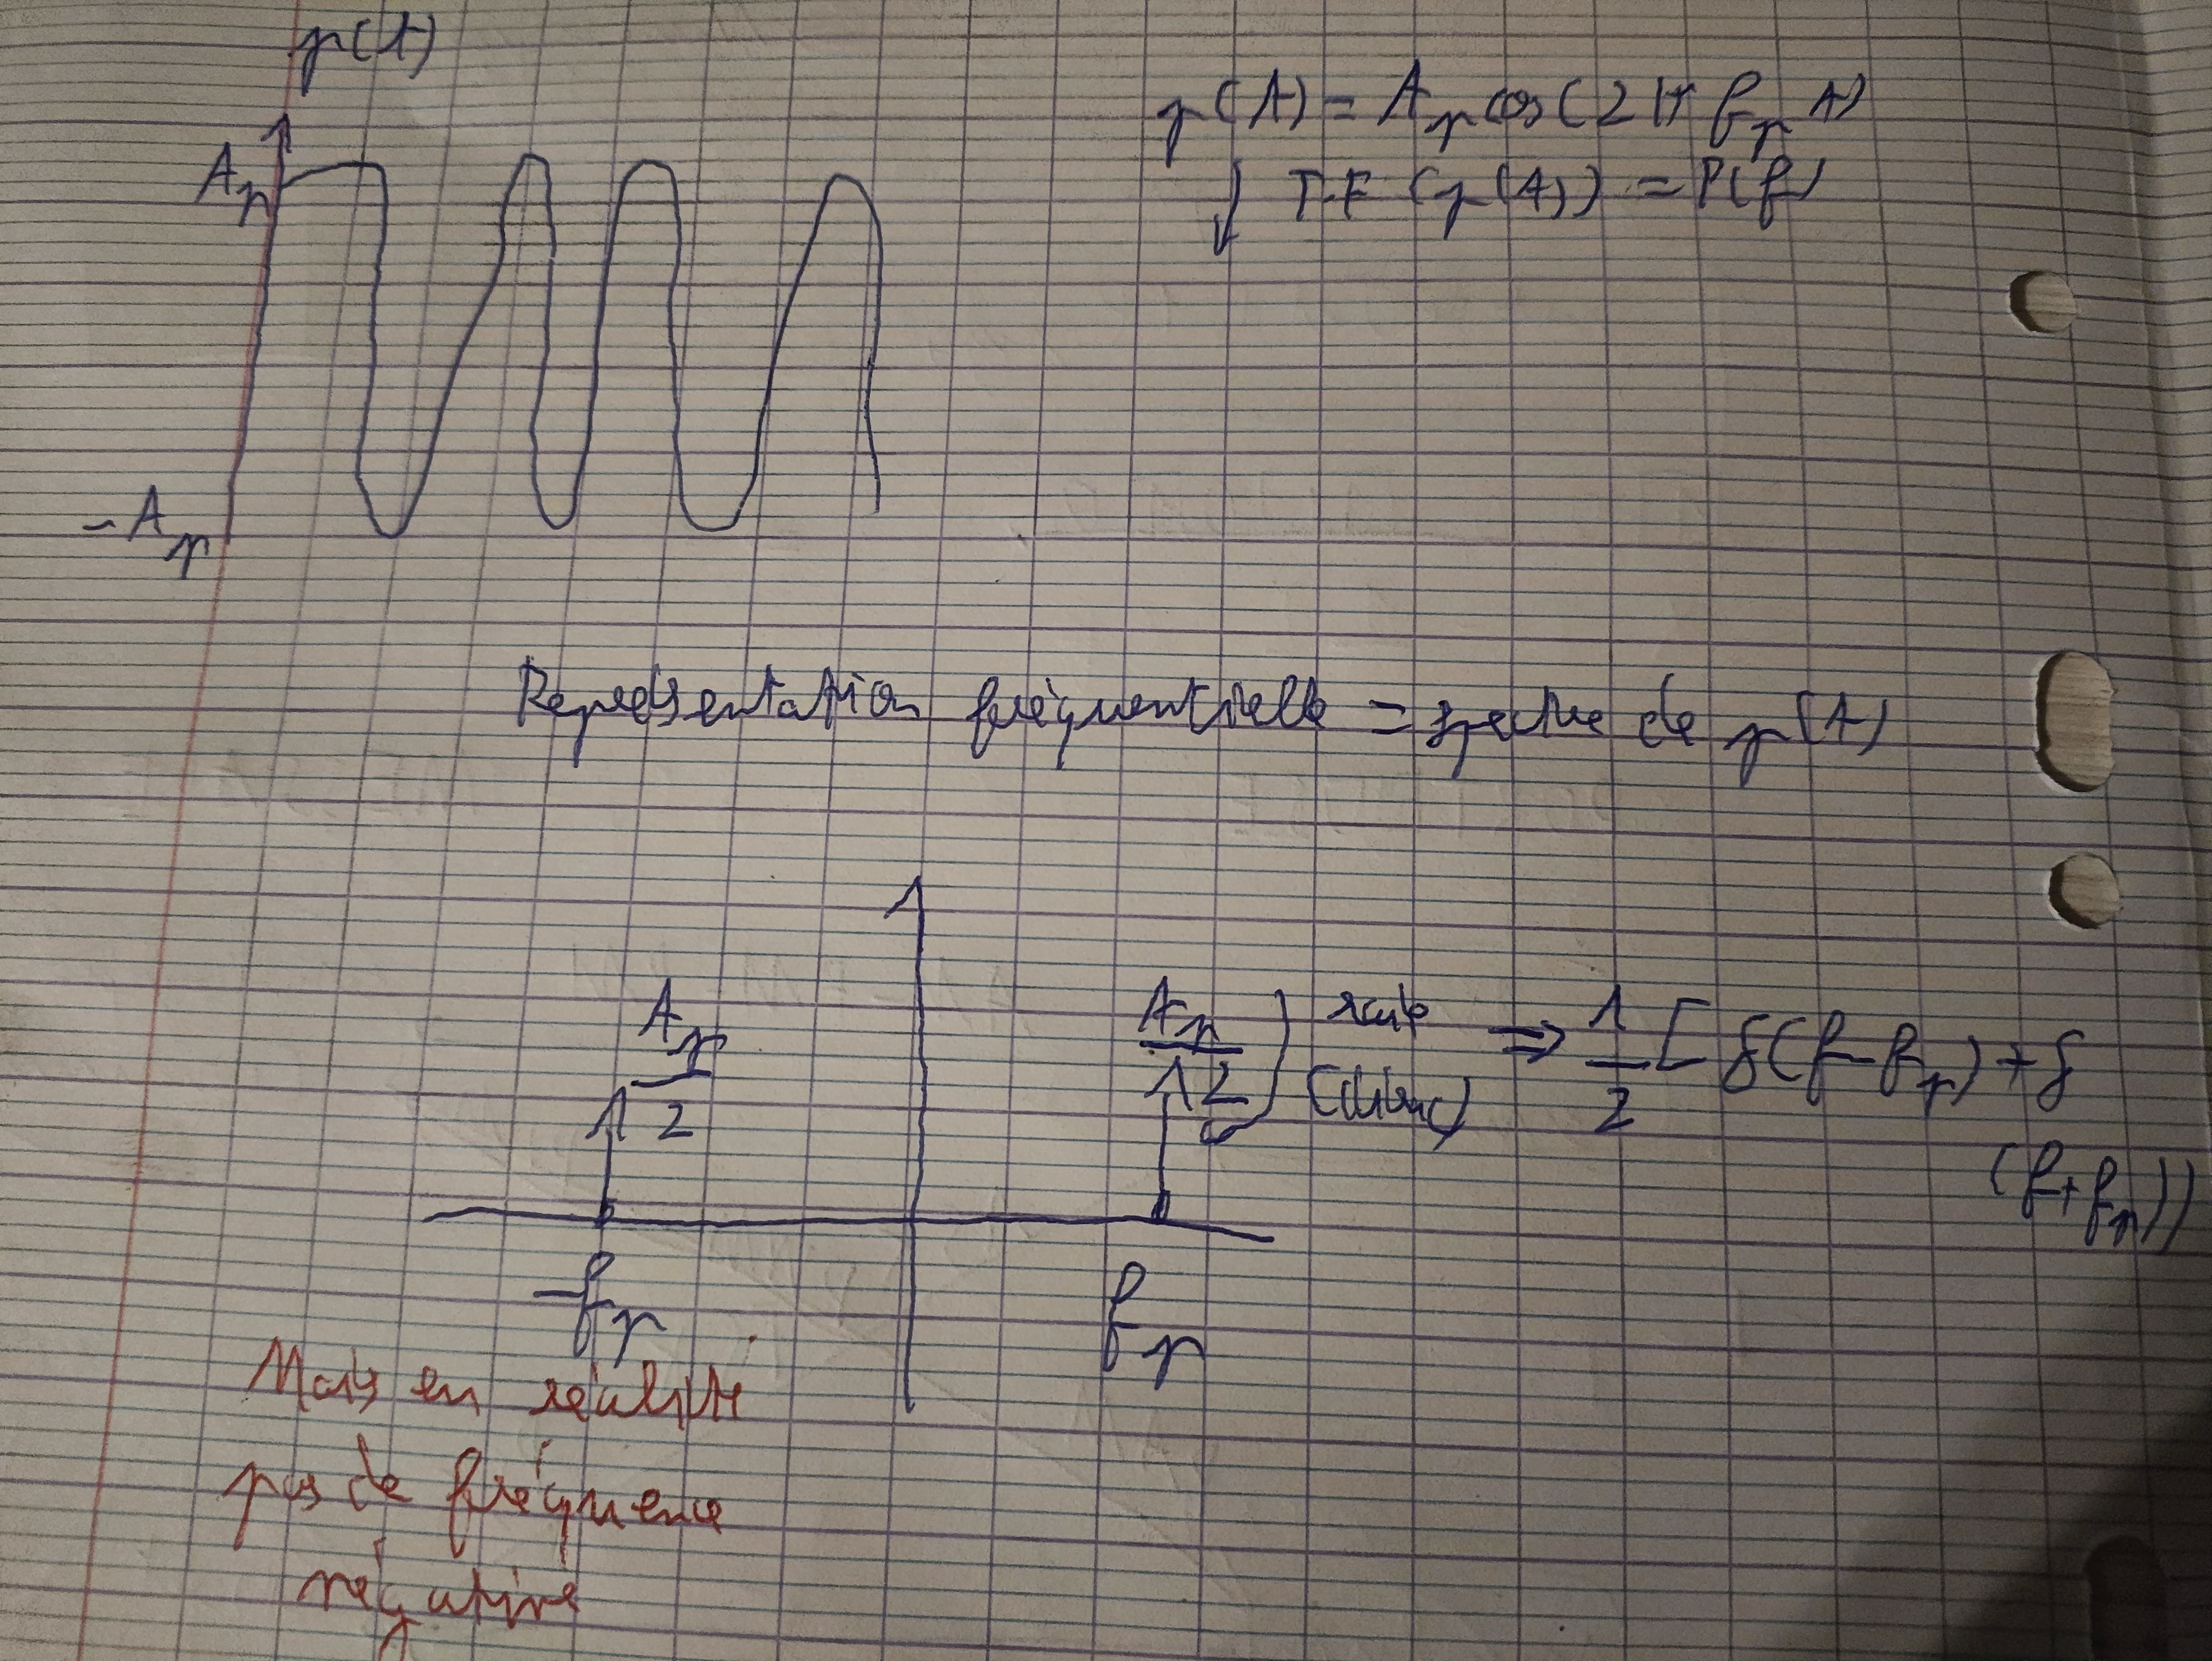 p(t)
Ap
-Ap
p(t) = Ap cos(2π fp t)
↓ TF (p(t)) = P(f)
Représentation fréquentielle = spectre de p(t)
Ap/2
Ap/2
(dirac)
⇒ 1/2 [δ(f-fp) + δ
(f+fp)]
-fp
fp
Mais en réalité
pas de fréquence
négative